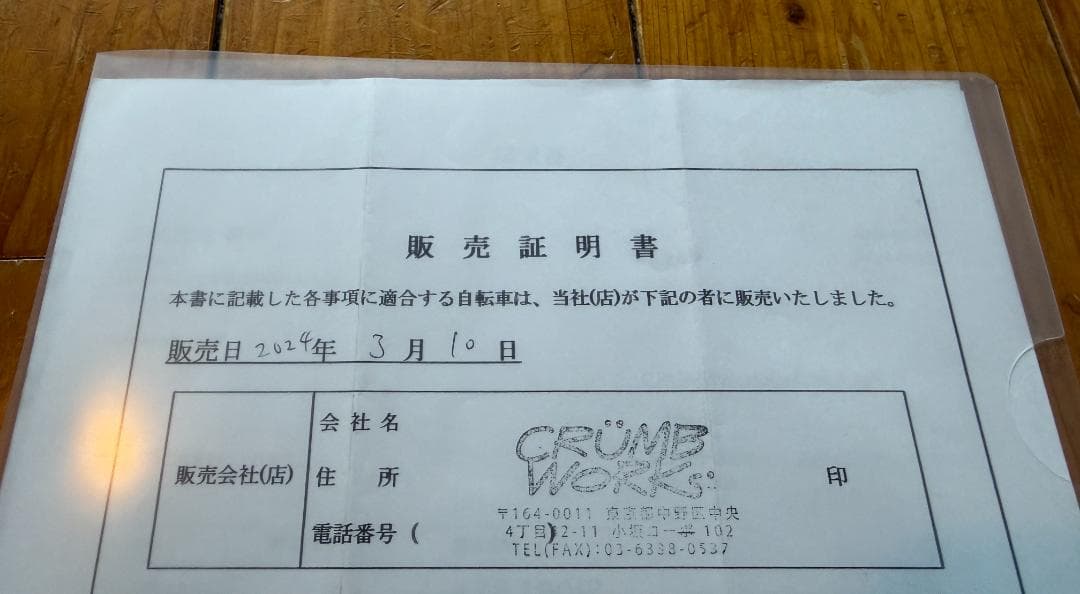 販売証明書
本書に記載した各事項に適合する自転車は、当社(店)が下記の者に販売いたしました。
販売日 2024年 3月 10日
販売会社(店)
会社名
住所
電話番号(
CRÜMB
WORKS
印
〒164-0011 東京都中野区中央
4丁目)2-11 小坂コーポ 102
TEL(FAX):03-6398-0537